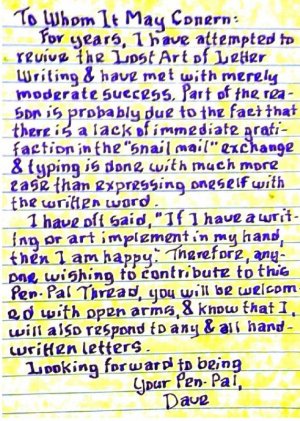 To Whom It May Conern:
For years, I have attempted to
revive the Lost Art of Letter
Writing & have met with merely
moderate success. Part of the rea-
son is probably due to the fact that
there is a lack of immediate grati-
faction in the "snail mail" exchange
& typing is done with much more
ease than expressing oneself with
the written word.
I have oft said, "If I have a writ-
ing or art implement in my hand,
then I am happy." Therefore, any-
one wishing to contribute to this
Pen-Pal Thread, you will be welcom
ed with open arms, & know that I,
will also respond to any & all hand-
written letters.
Looking forward to being
Your Pen-Pal,
Dave